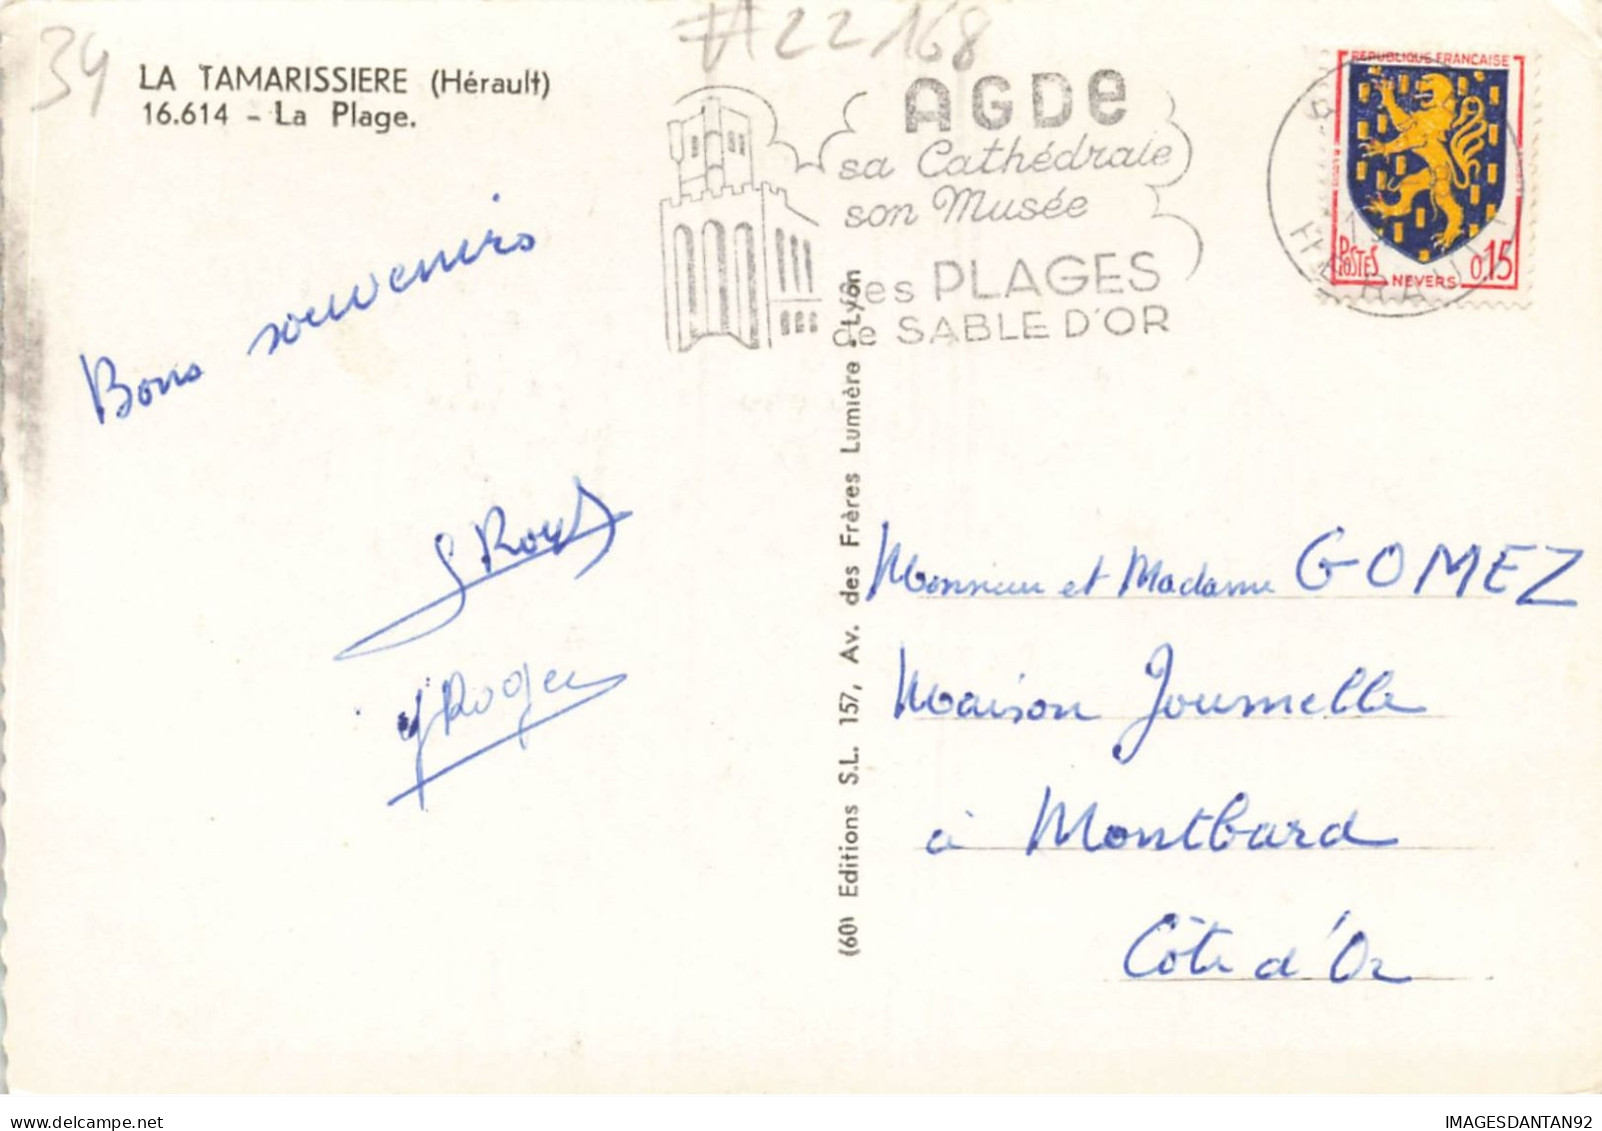 34
#22168
LA TAMARISSIERE (Hérault)
16.614 - La Plage.
AGDe
sa Cathédrale
son Musée
ses PLAGES
de SABLE D'OR
REPUBLIQUE FRANÇAISE
POSTES
NEVERS
0,15
Bons souvenirs
Roger
(60) Editions S.L. 157, Av. des Frères Lumière - Lyon
Monsieur et Madame GOMEZ
Maison Journelle
à Montbard
Côte d'Or
www.delcampe.net
IMAGESDANTAN92